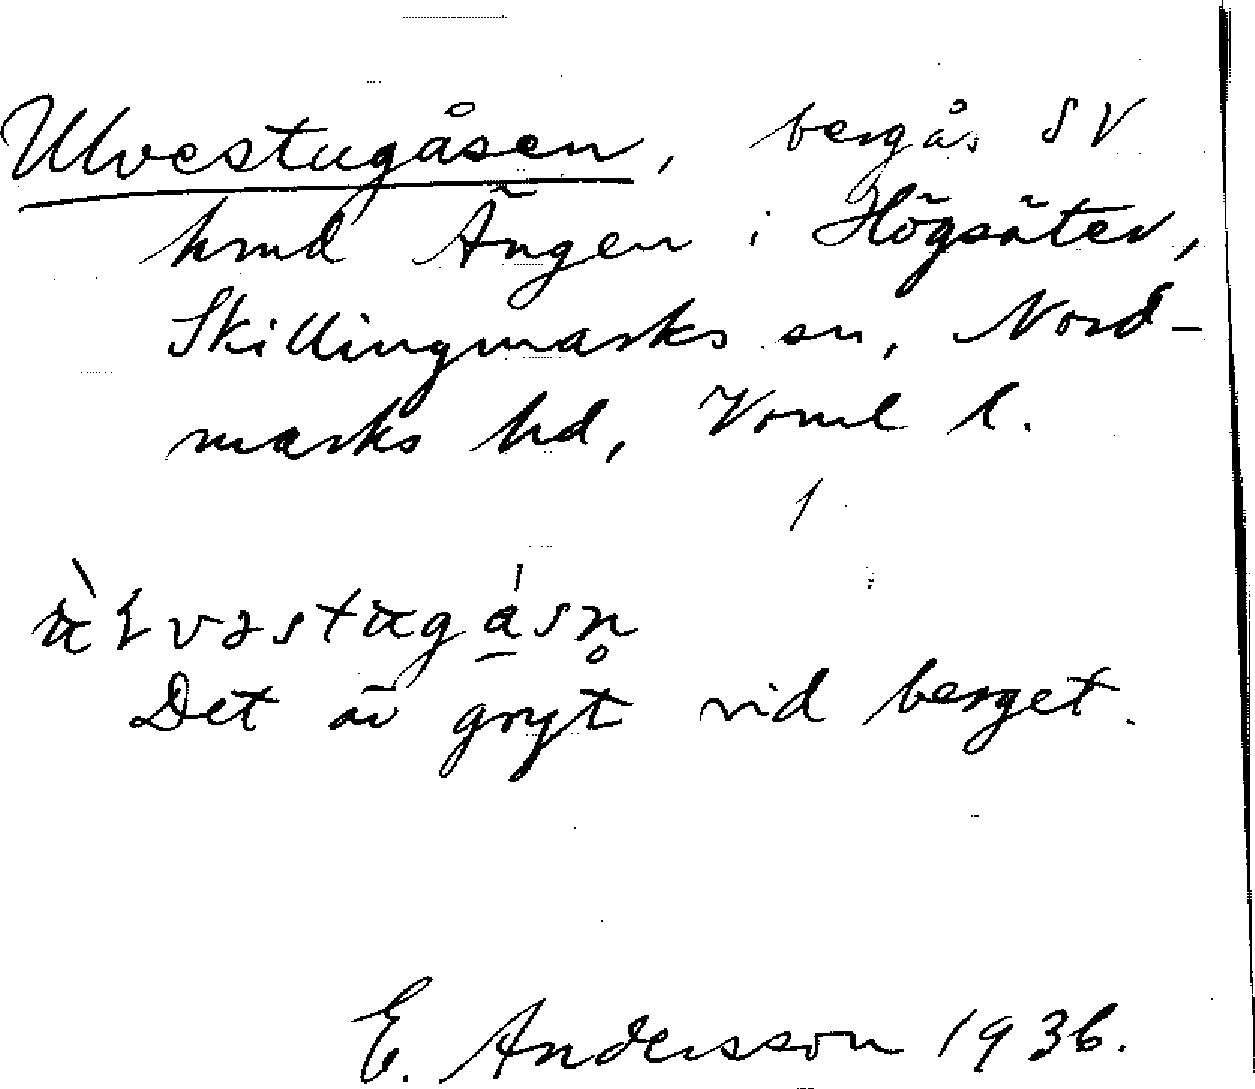 Ulvestugåsen, bergås SV
hmd Ängen i Högsäter,
Skillingmarks sn, Nord-
marks hd, Vrml l.
Det är grytt vid berget.
E. Andersson 1936.